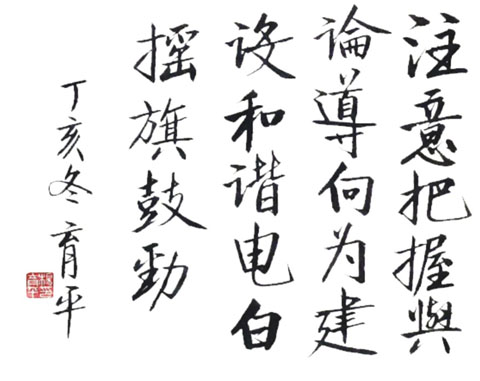 注意把握與
論導向为建
设和谐电白
摇旗鼓勁
丁亥冬育平